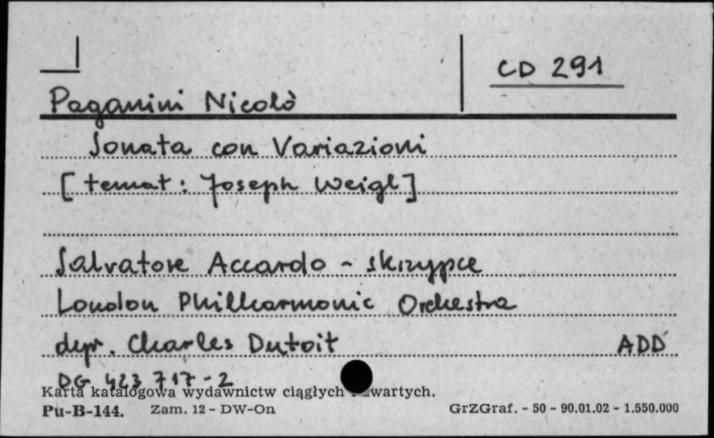 CD 291
Paganini Nicolò
Sonata con Variazioni
[temat: Joseph Weigl]
Salvatore Accardo - skrzypce
London Philharmonic Orchestra
dyr. Charles Dutoit ADD
DG 423 717-2
Karta katalogowa wydawnictw ciągłych i zwartych.
Pu-B-144. Zam. 12 - DW-On GrZGraf. - 50 - 90.01.02 - 1.550.000